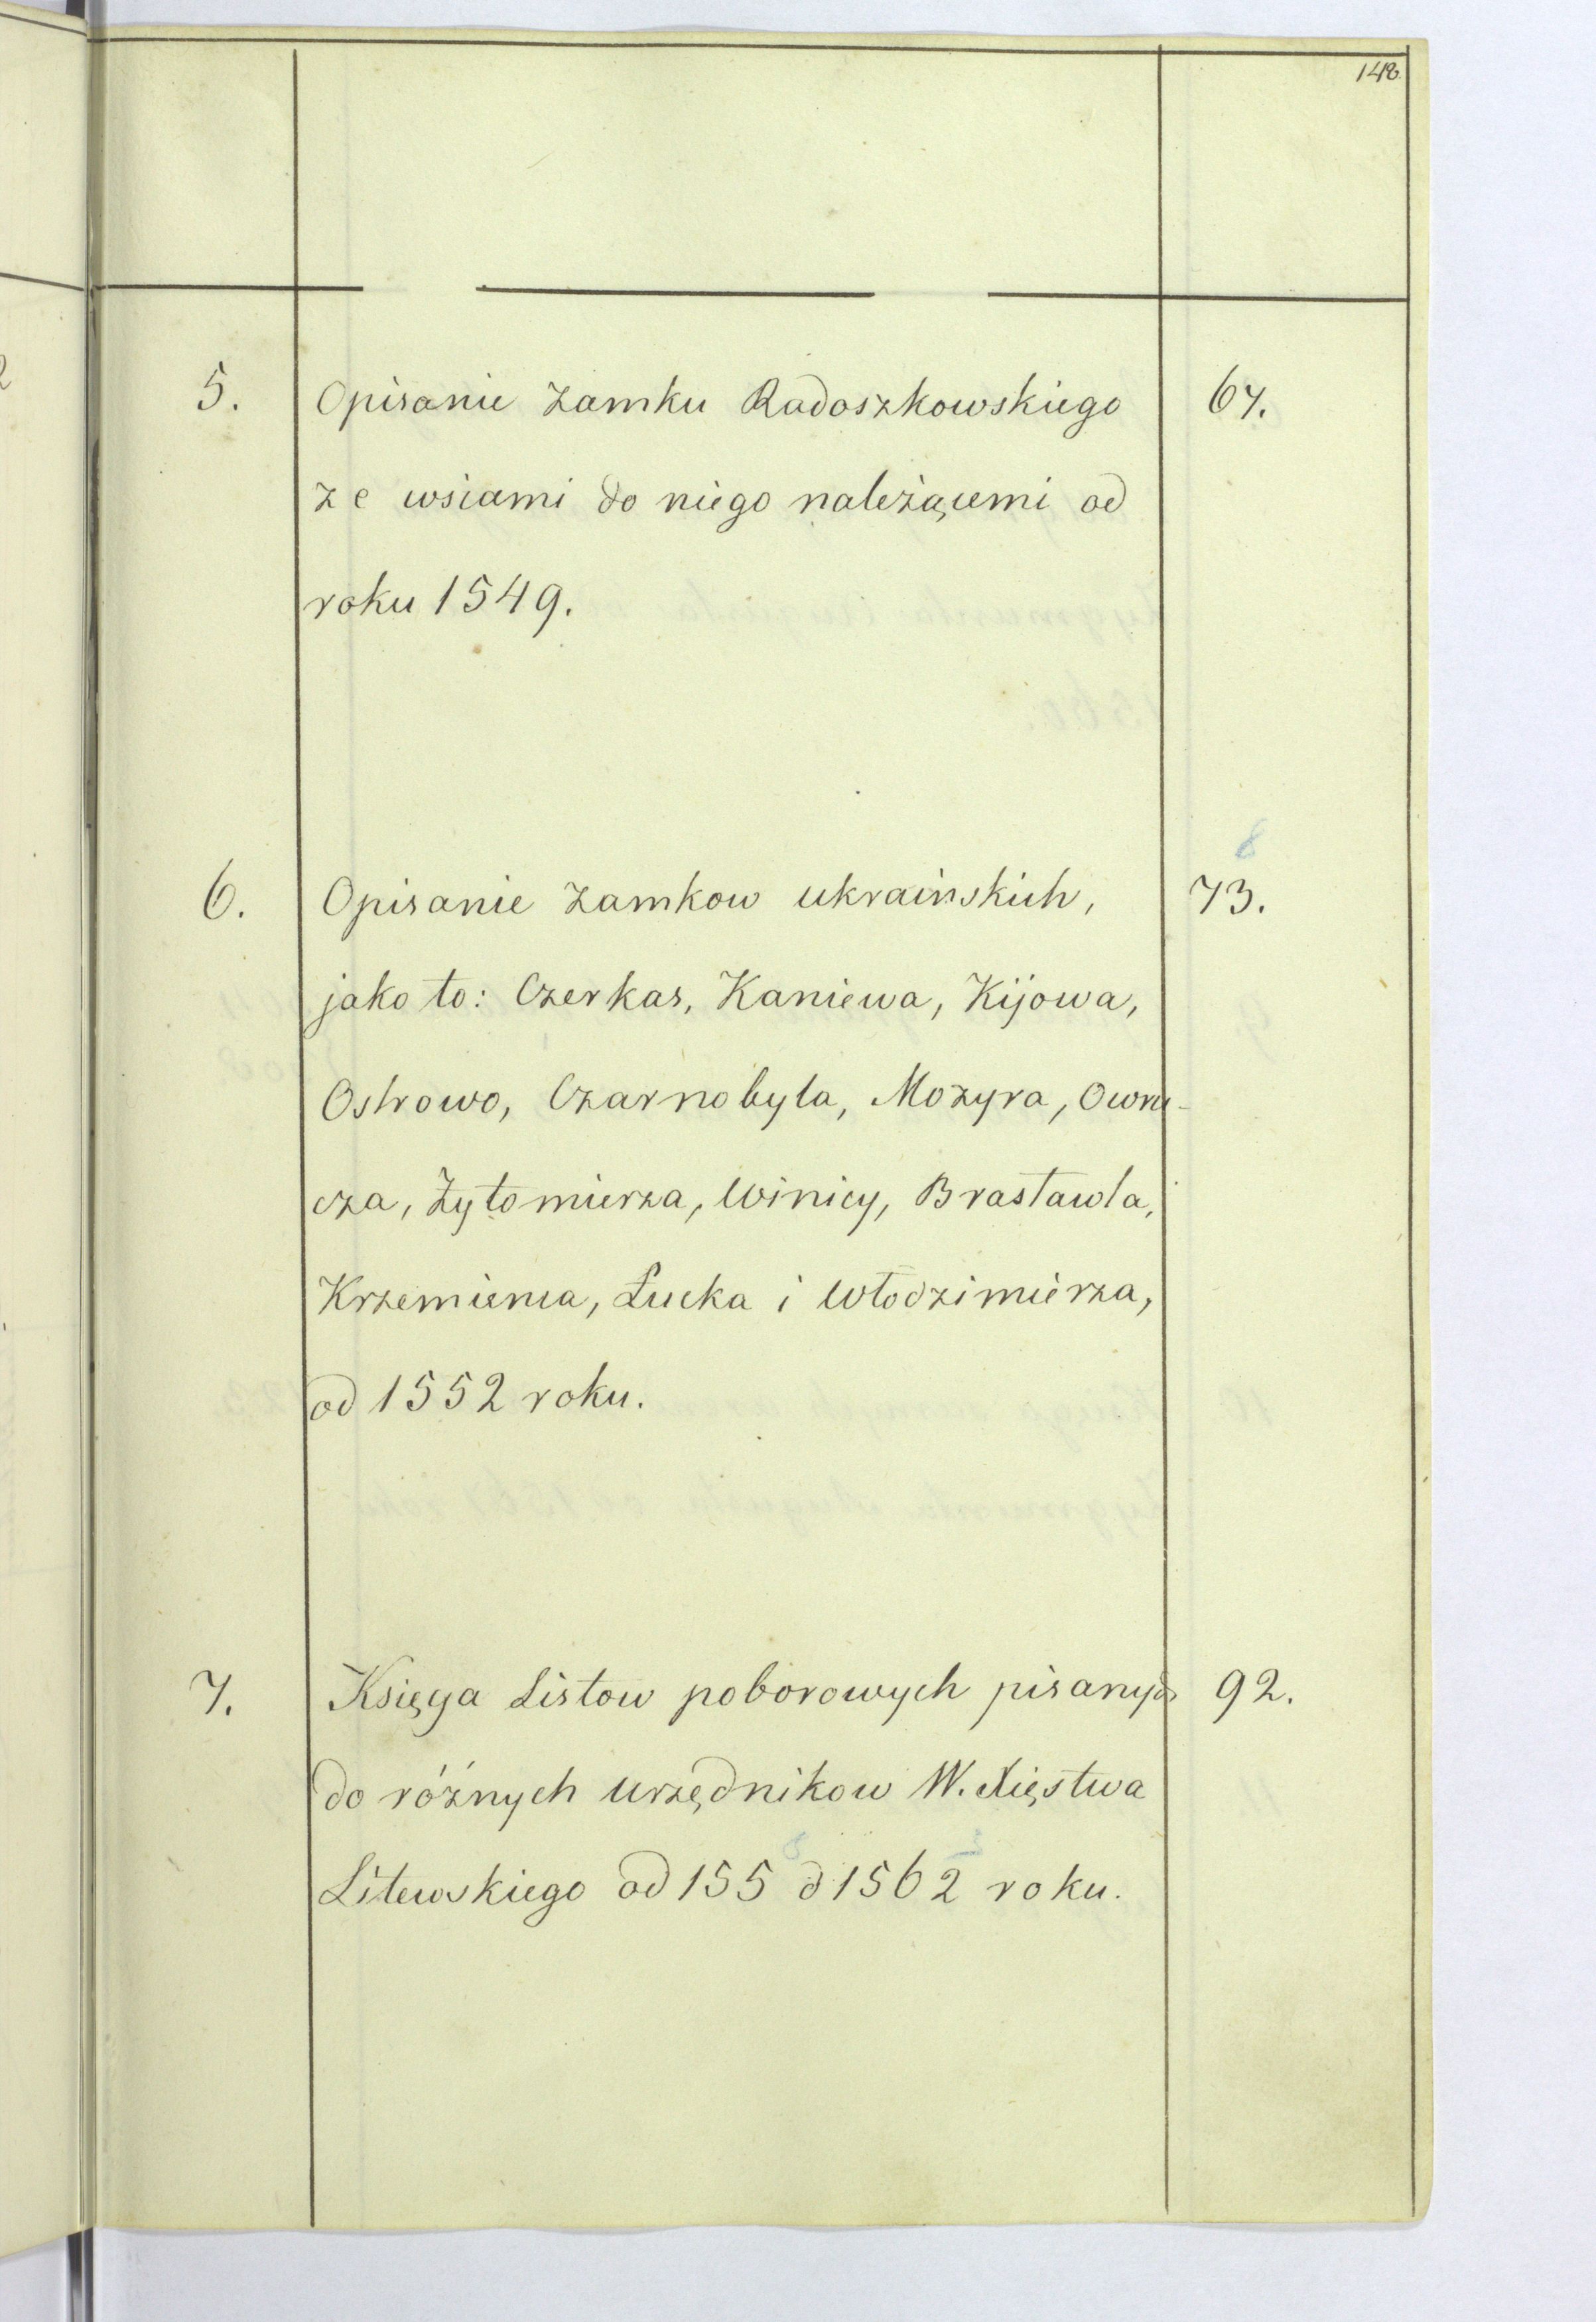 148
5. Opisanie Zamku Radoszkowskiego 67.
ze wsiami do niego należącemi od
roku 1549.
8
6. Opisanie Zamkow ukraińskich, 73.
jako to: Czerkas, Kaniewa, Kijowa,
Ostrowo, Czarnobyla, Mozyra, Owru-
cza, Żytomierza, Winicy, Brasławla,
Krzemienca, Łucka i Włodzimierza,
od 1552 roku.
7. Księga Listow poborowych pisanych 92.
do różnych urzędnikow W. Xięstwa
Litewskiego od 155 d 1562 roku.